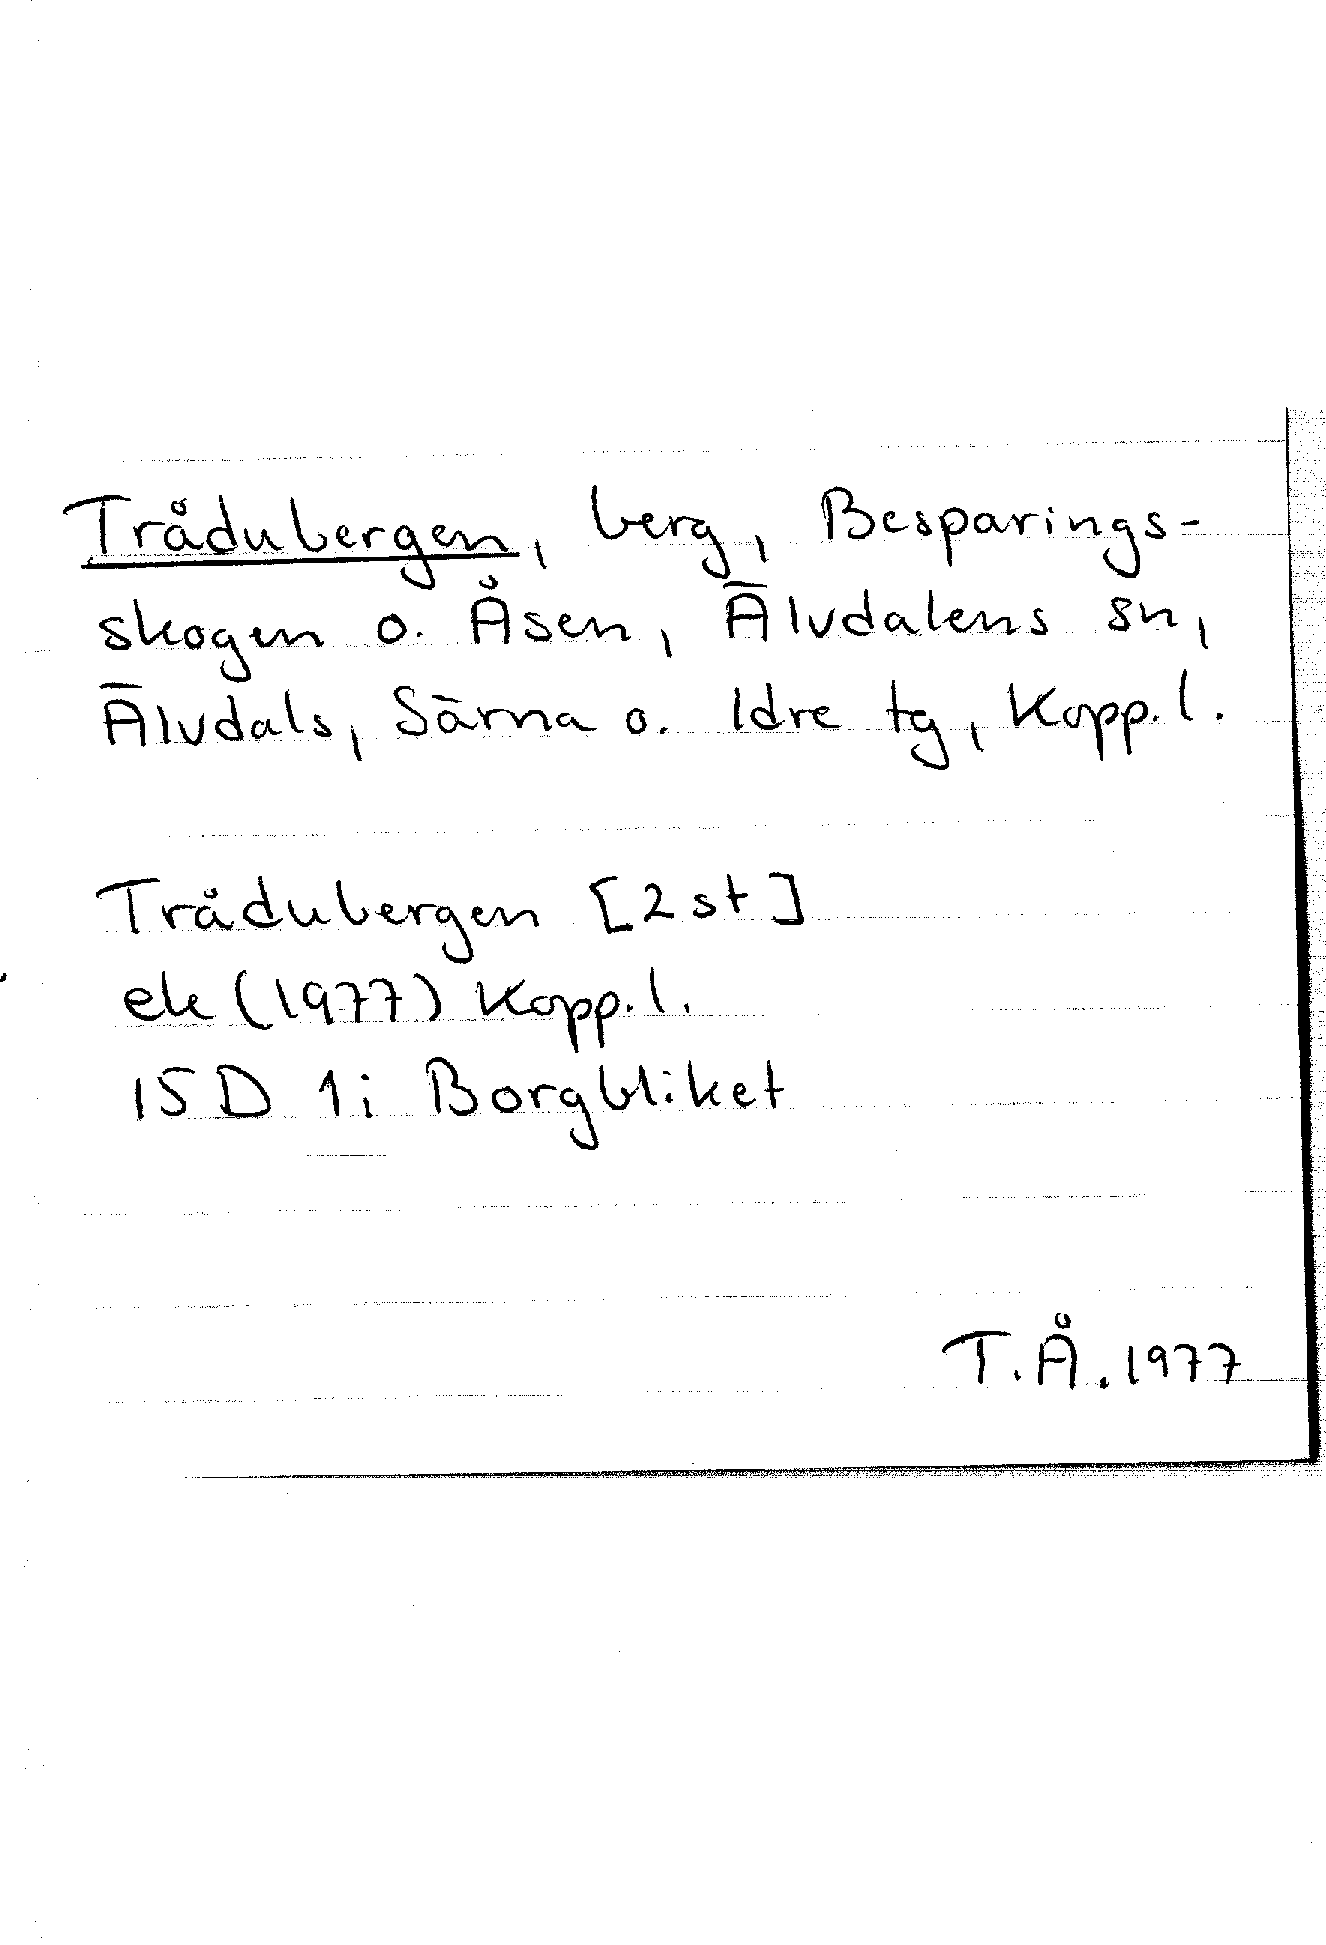 Trådubergen, berg, Besparings-
skogen o. Åsen, Älvdalens sn,
Älvdals, Särna o. Idre tg, Kopp. l.
Trådubergen [2 st]
ek (1977) Kopp. l.
15D 1i Borgbliket
T.Å. 1977